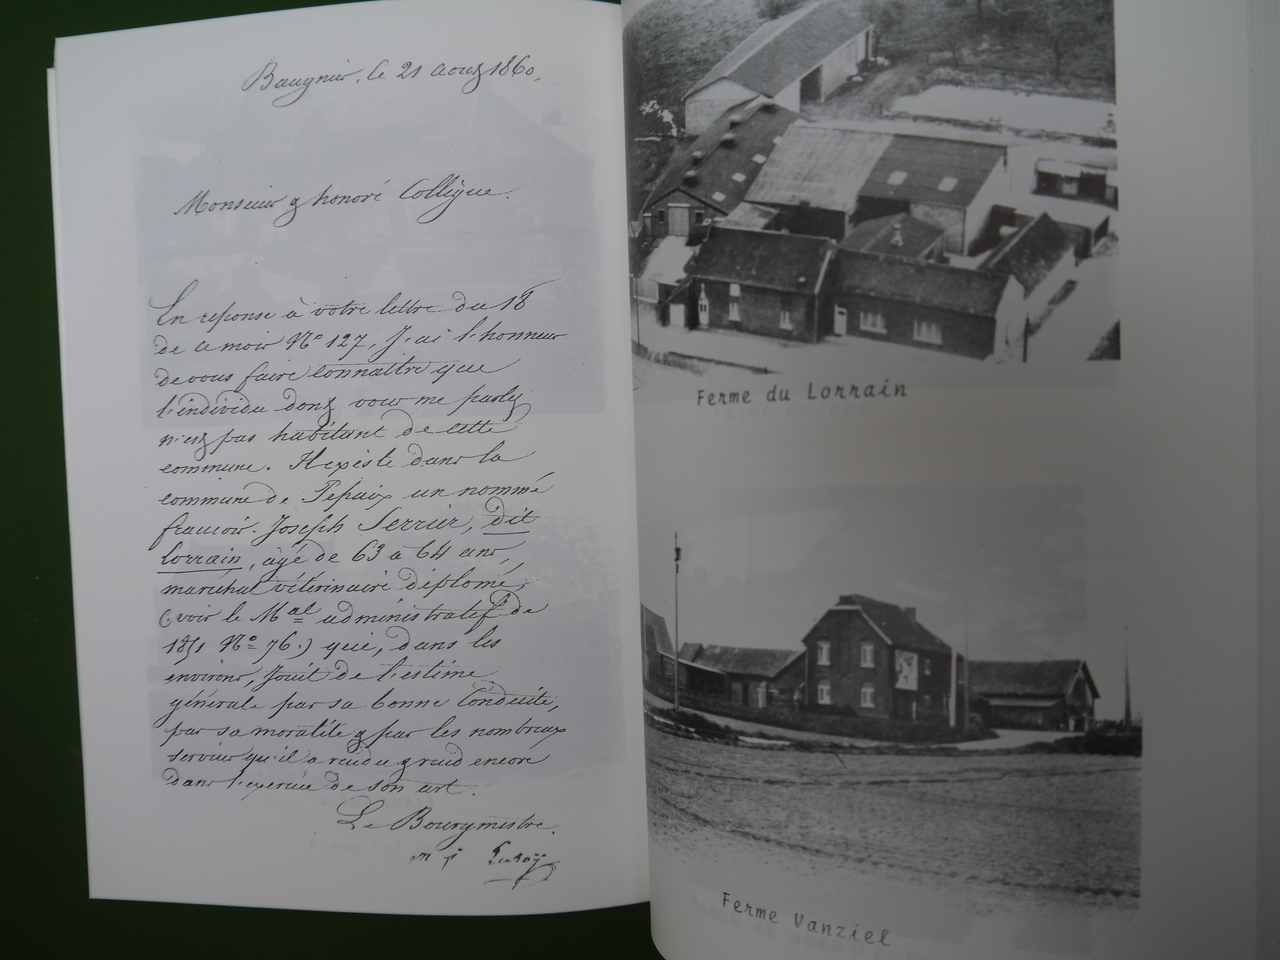 Baugnies, le 21 aout 1860.
Monsieur & honoré Collègue.
En reponse à votre lettre du 18
de ce mois Nº 127, J'ai l'honneur
de vous faire connaître que
l'individu dont vous me parlez
n'est pas habitant de cette
commune. Il existe dans la
commune de Pipaix un nommé
francois-Joseph Serrier, dit
Lorrain, âgé de 63 a 64 ans,
maréchal vétérinaire diplomé,
(voir le Mal administratif de
1851 Nº 76.) qui, dans les
environs, Jouit de l'estime
générale par sa bonne Conduite,
par sa moralité & par les nombreux
services qu'il a rendu & rend encore
dans l'exercice de son art.
Le Bourgmestre.
Ferme du Lorrain
Ferme Vanziel